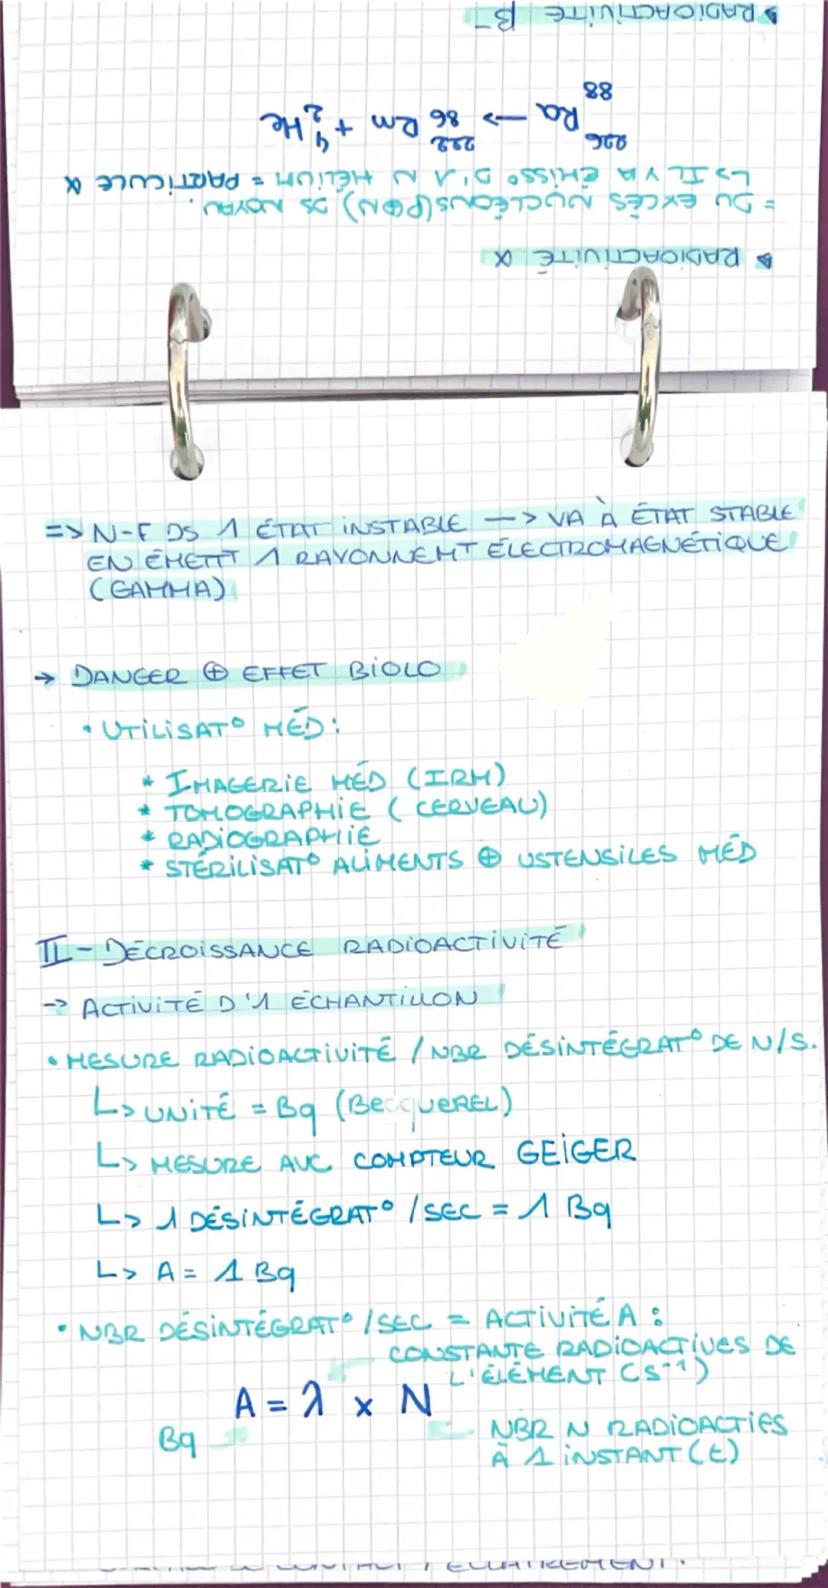 ▸ RADIOACTIVITÉ α
= DU EXCÈS NUCLÉONS (P⊕N) DS NOYAU.
↳ IL Y A ÉMISS° D'1 N HÉLIUM = PARTICULE α
226 88 Ra → 222 86 Rm + 4 2 He
▸ RADIOACTIVITÉ β⁻
=> N-F DS 1 ÉTAT INSTABLE —> VA À ÉTAT STABLE
EN ÉMETTT 1 RAYONNEMT ÉLECTROMAGNÉTIQUE
(GAMMA)
→ DANGER ⊕ EFFET BIOLO
• UTILISAT° MÉD :
* IMAGERIE MÉD (IRM)
* TOMOGRAPHIE (CERVEAU)
* RADIOGRAPHIE
* STÉRILISAT° ALIMENTS ⊕ USTENSILES MÉD
II - DÉCROISSANCE RADIOACTIVITÉ
→ ACTIVITÉ D'1 ÉCHANTILLON
• MESURE RADIOACTIVITÉ / NBR DÉSINTÉGRAT° DE N/S.
↳ UNITÉ = Bq (BECQUEREL)
↳ MESURE AVC COMPTEUR GEIGER
↳ 1 DÉSINTÉGRAT° /SEC = 1 Bq
↳ A = 1 Bq
• NBR DÉSINTÉGRAT° /SEC = ACTIVITÉ A :
CONSTANTE RADIOACTIVES DE
L'ÉLÉMENT (S⁻¹)
A = λ x N
Bq
NBR N RADIOACTIFS
À 1 INSTANT (t)